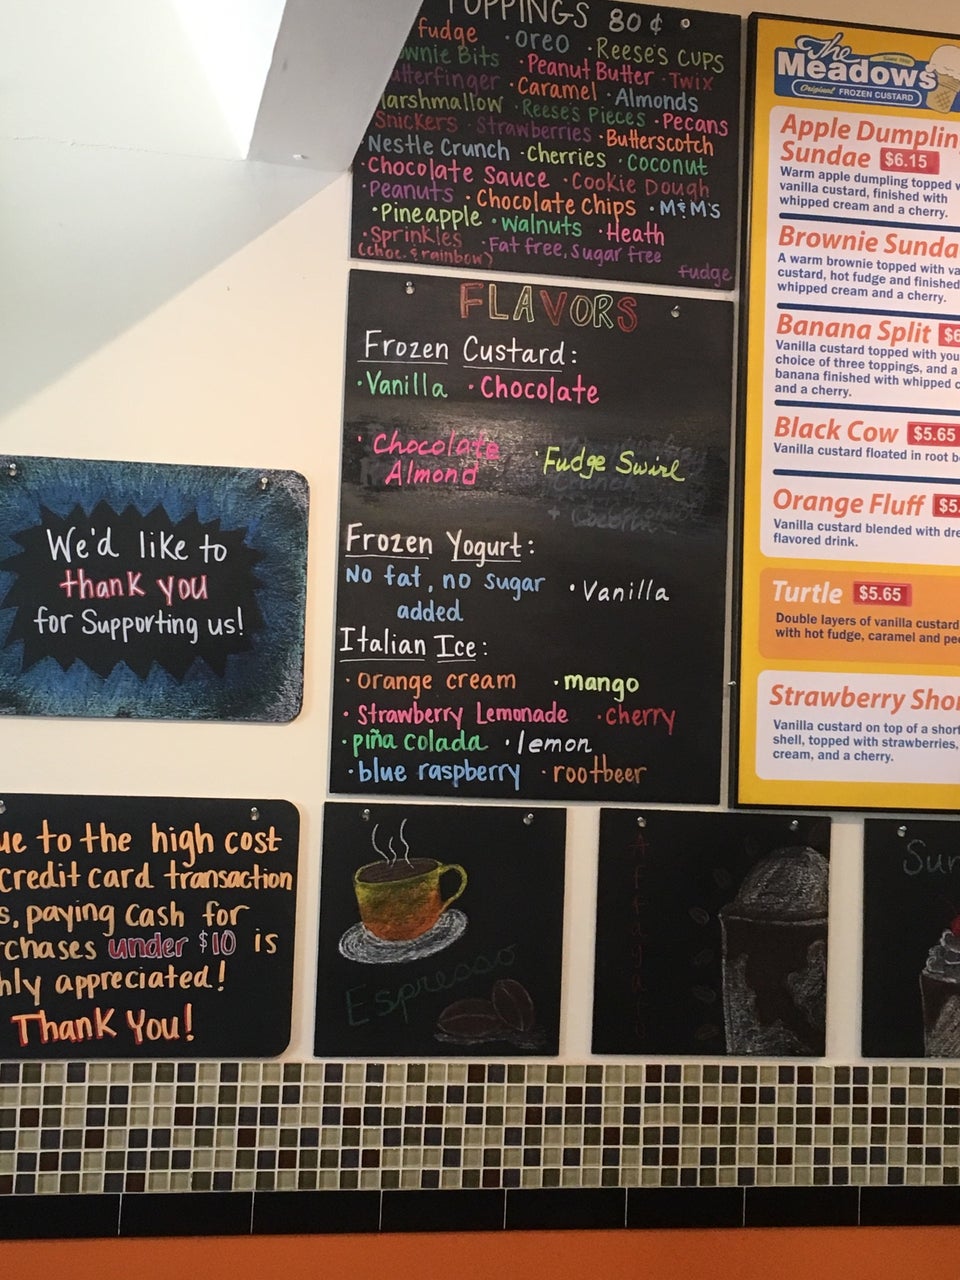 TOPPINGS 80¢
fudge · Oreo · Reese's Cups
Bits · Peanut Butter · Twix
· Caramel · Almonds
· Reese's Pieces · Pecans
Snickers · Strawberries · Butterscotch
Nestle Crunch · Cherries · Coconut
· Chocolate Sauce · Cookie Dough
· Peanuts · Chocolate Chips · M&M's
· Pineapple · Walnuts · Heath
· Sprinkles · Fat free, sugar free
(choc. & rainbow) fudge
FLAVORS
Frozen Custard:
· Vanilla · Chocolate
· Chocolate
Almond · Fudge Swirl
Frozen Yogurt:
No fat, no sugar
added · Vanilla
Italian Ice:
· orange cream · mango
· Strawberry Lemonade · cherry
· piña colada · lemon
· blue raspberry · rootbeer
The
Meadows
Original FROZEN CUSTARD
Apple
Sundae $6.15
Warm apple dumpling topped
vanilla custard, finished with
whipped cream and a cherry.
Brownie
A warm brownie topped with
custard, hot fudge and finished
whipped cream and a cherry.
Banana Split
Vanilla custard topped with
choice of three toppings, and a
banana finished with whipped
and a cherry.
Black Cow $5.65
Vanilla custard floated in root
Orange Fluff
Vanilla custard blended with
flavored drink.
Turtle $5.65
Double layers of vanilla custard
with hot fudge, caramel and
Strawberry
Vanilla custard on top of a
shell, topped with strawberries,
cream, and a cherry.
We'd like to
thank you
for Supporting us!
to the high cost
credit card transaction
paying cash for
under $10 is
appreciated!
Thank You!
Espresso
Affogato